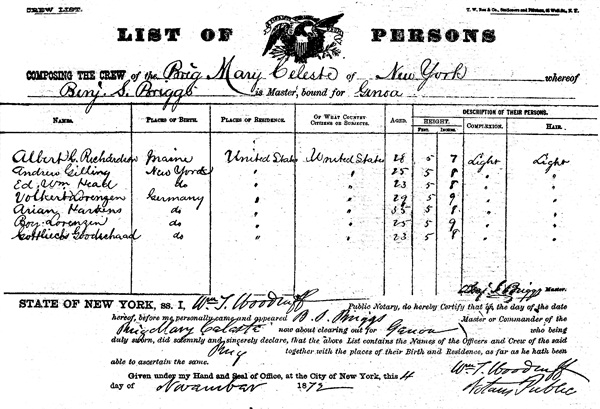 CREW LIST.
T. W. & Co., Stationers and Printers, Wall St., N. Y.
LIST OF PERSONS
COMPOSING THE CREW of the Brig Mary Celeste of New York whereof
Benj. S. Briggs is Master, bound for Genoa
DESCRIPTION OF THEIR PERSONS.
NAMES. PLACES OF BIRTH. PLACES OF RESIDENCE. OF WHAT COUNTRY CITIZENS OR SUBJECTS. AGED. HEIGHT. Feet. Inches. COMPLEXION. HAIR.
Albert G. Richardson Maine United States United States 28 5 7 Light Light
Andrew Gilling New York " " 25 5 8 " "
Ed. Wm Head do " " 23 5 8 " "
Volkert Lorenzen Germany " " 29 5 9 " "
Arian Martens do " " 35 5 8 " "
Boy Lorenzen do " " 25 5 9 " "
Gottlieb Goodschaad do " " 23 5 8 " "
Benj. S. Briggs Master.
STATE OF NEW YORK, ss. I, Wm T. Woodruff Public Notary, do hereby Certify that on the day of the date
hereof, before me personally came and appeared B. S. Briggs Master or Commander of the
Brig Mary Celeste now about clearing out for Genoa who being
duly sworn, did solemnly and sincerely declare, that the above List contains the Names of the Officers and Crew of the said
Brig together with the places of their Birth and Residence, as far as he hath been
able to ascertain the same.
Given under my Hand and Seal of Office, at the City of New York, this 4
day of November 1872
Wm. T. Woodruff
Notary Public